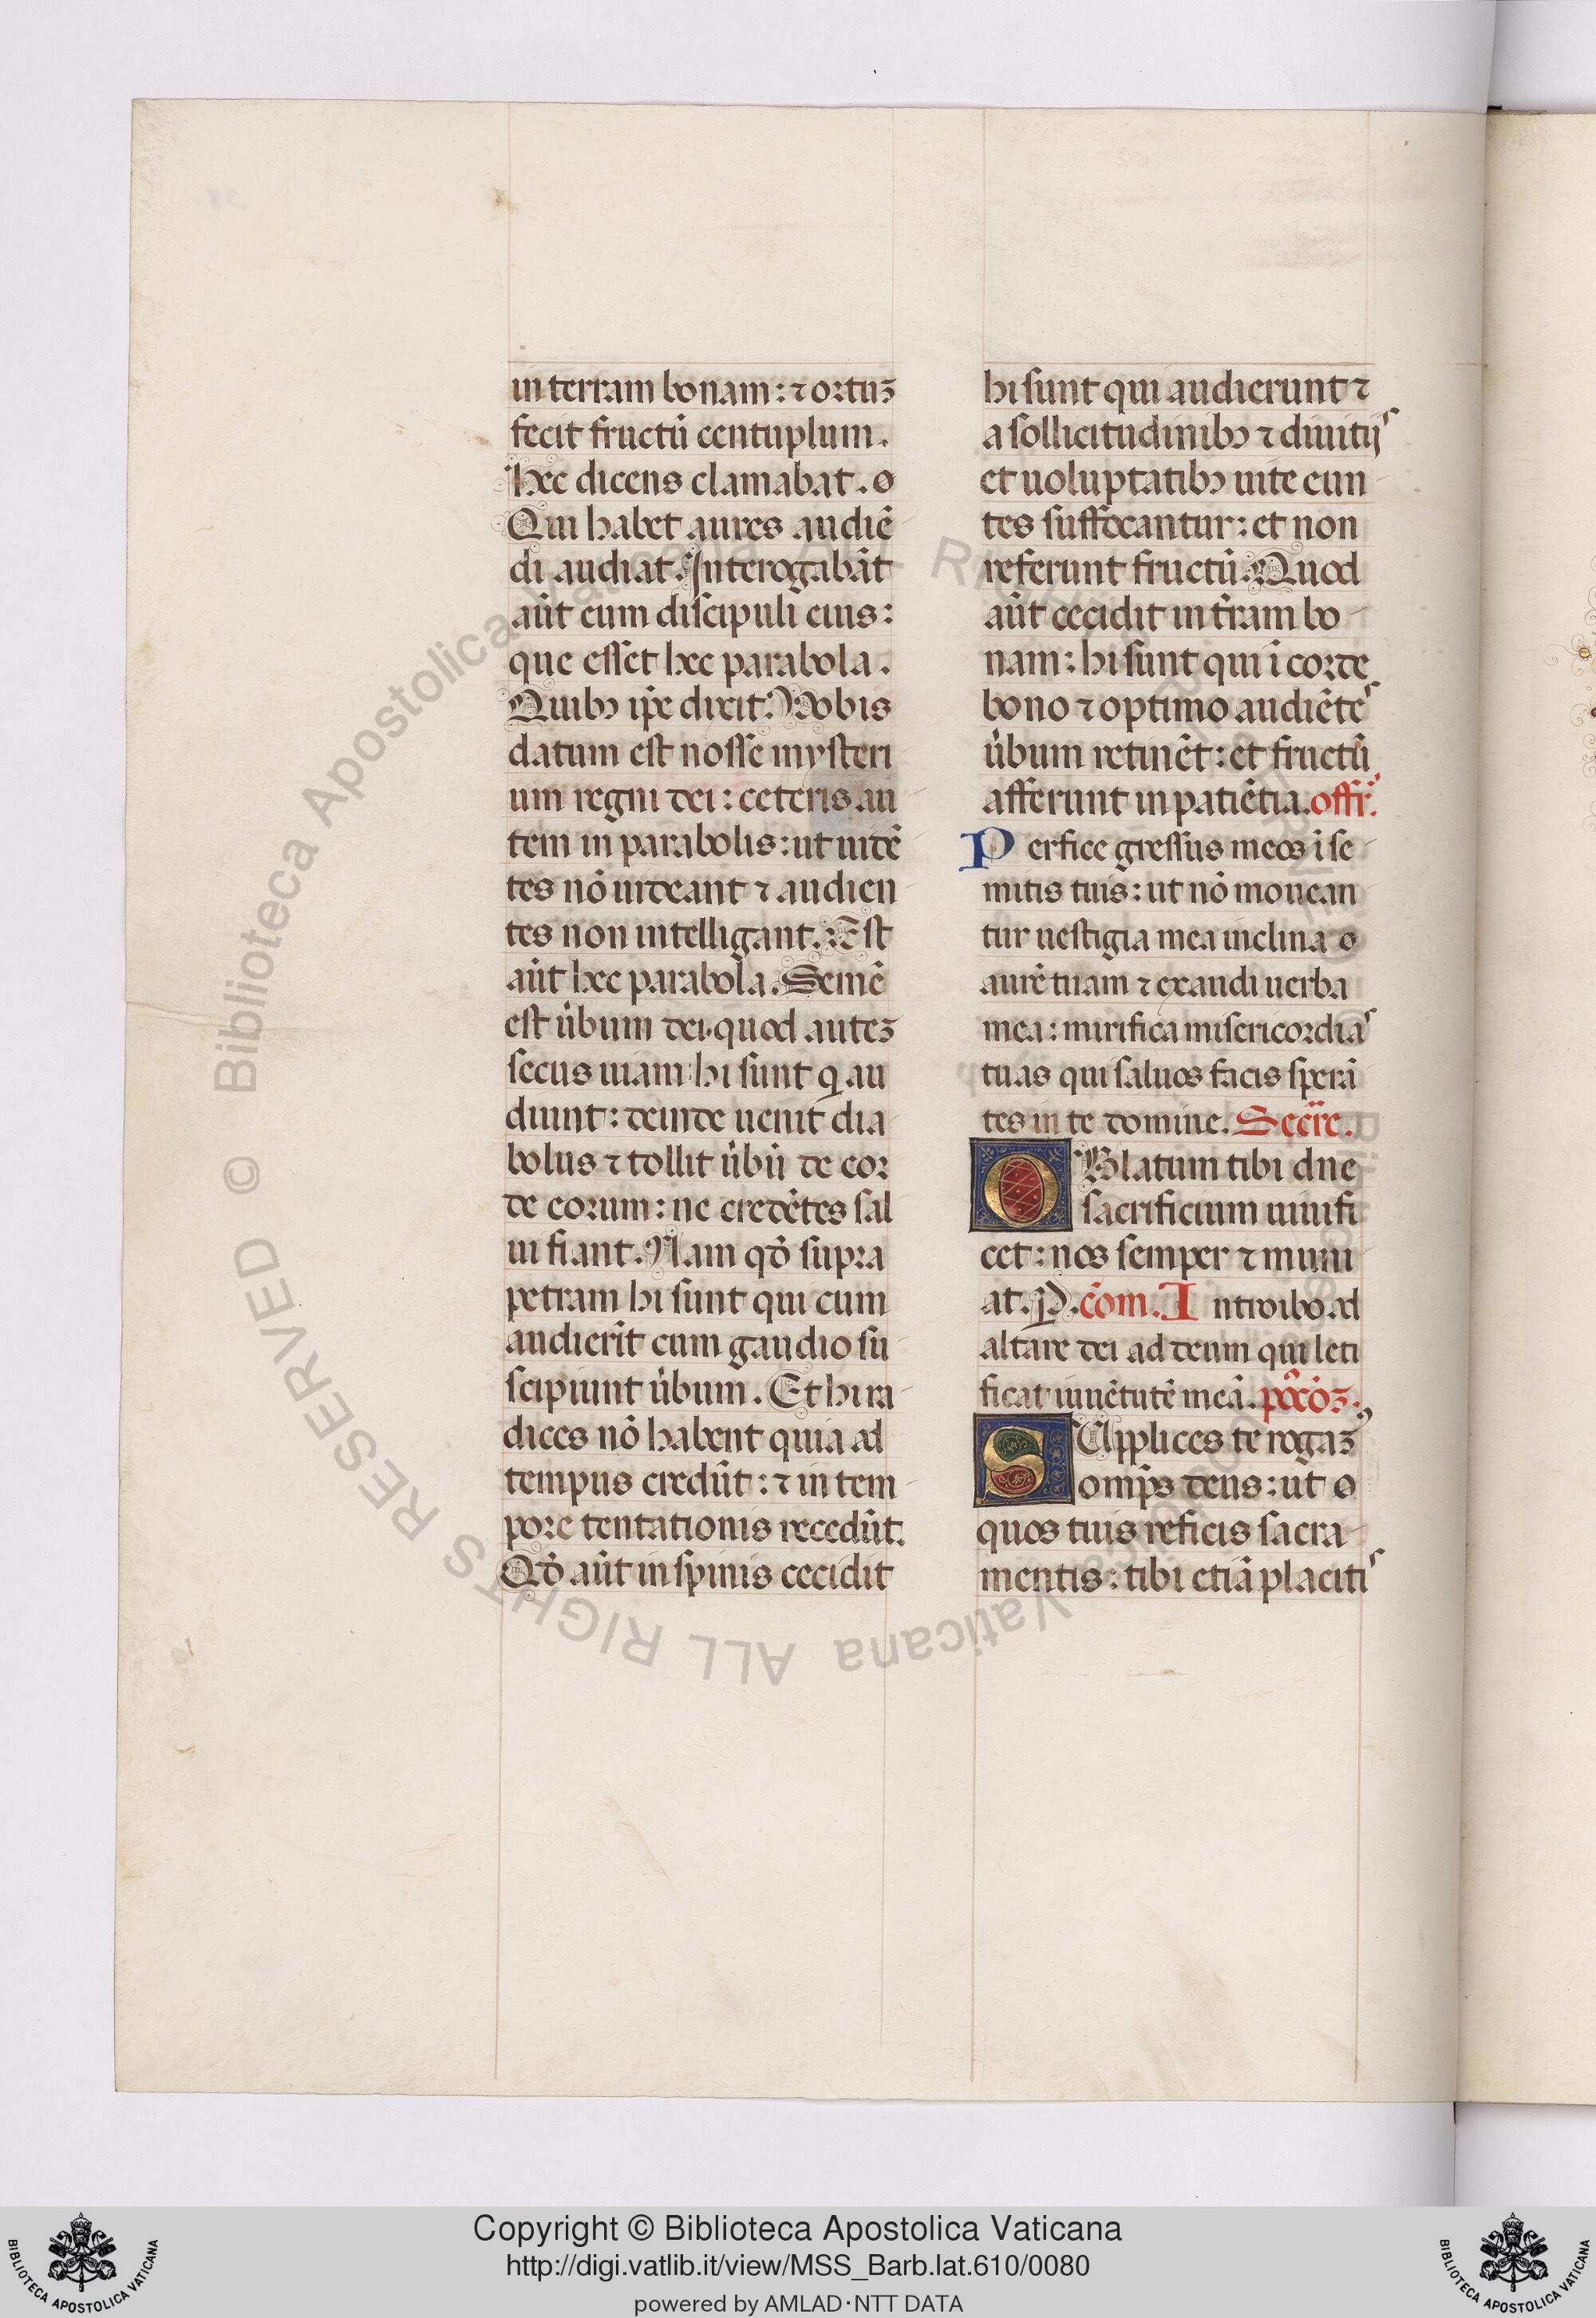 in terram bonam: ⁊ ortuꝫ
fecit fructū centuplum.
Hec dicens clamabat. o
Qui habet aures audiē
di audiat. Interogabāt
aūt eum discipuli eius:
que esset hec parabola.
Quibꝰ ip̄e dixit. Vobis
datum est nosse mysteri
um regni dei: ceteris au
tem in parabolis: ut uidē
tes nō uideant ⁊ audien
tes non intelligant. Est
aūt hec parabola. Semē
est ūbum dei. quod auteꝫ
secus uiam: hi sunt q̄ au
diunt: deinde uenit dia
bolus ⁊ tollit ūbū de cor
de eorum: ne credētes sal
ui fiant. Nam qđ supra
petram hi sunt qui cum
audierīt cum gaudio su
scipiunt ūbum. Et hi ra
dices nō habent quia ad
tempus credūt: ⁊ in tem
pore tentationis recedūt.
Qđ aūt in spinis cecidit
hi sunt qui audierunt ⁊
a sollicitudinibꝰ ⁊ diuitijs
et uoluptatibꝰ uite eun
tes suffocantur: et non
referunt fructū. Quod
aūt cecidit in t̄ram bo
nam: hi sunt qui ī corde
bono ⁊ optimo audiētes
ūbum retinēt: et fructū
afferunt in patiētia. offr̄.
Perfice gressus meos ī se
mitis tuis: ut nō mouean
tur uestigia mea inclina o
aurē tuam ⁊ exaudi uerba
mea: mirifica misericordias
tuas qui saluos facis sperā
tes in te domine. Secr̄e.
OBlatum tibi dn̄e
sacrificium uiuifi
cet: nos semper ⁊ muni
at. P. cōm. Introibo ad
altare dei ad deum qui leti
ficat iuuētutē meā. poc̄oꝫ.
SUpplices te rogaꝫ
omīps deus: ut o
quos tuis reficis sacra
mentis: tibi etiā placitis
© Biblioteca Apostolica Vaticana ALL RIGHTS RESERVED
Copyright © Biblioteca Apostolica Vaticana
http://digi.vatlib.it/view/MSS_Barb.lat.610/0080
powered by AMLAD·NTT DATA
BIBLIOTECA APOSTOLICA VATICANA
BIBLIOTECA APOSTOLICA VATICANA